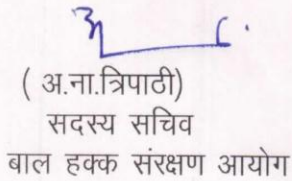 ( अ.ना.त्रिपाठी)
सदस्य सचिव
बाल हक्क संरक्षण आयोग